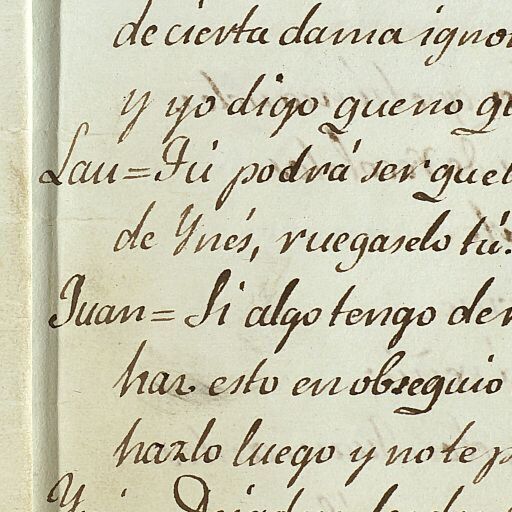 de cierta dama ignor
y yo digo que no q
Lau = Tú podrá ser que
de Ynés, ruegaselo tú.
Juan = Si algo tengo de
haz esto en obsequio
hazlo luego y no te p